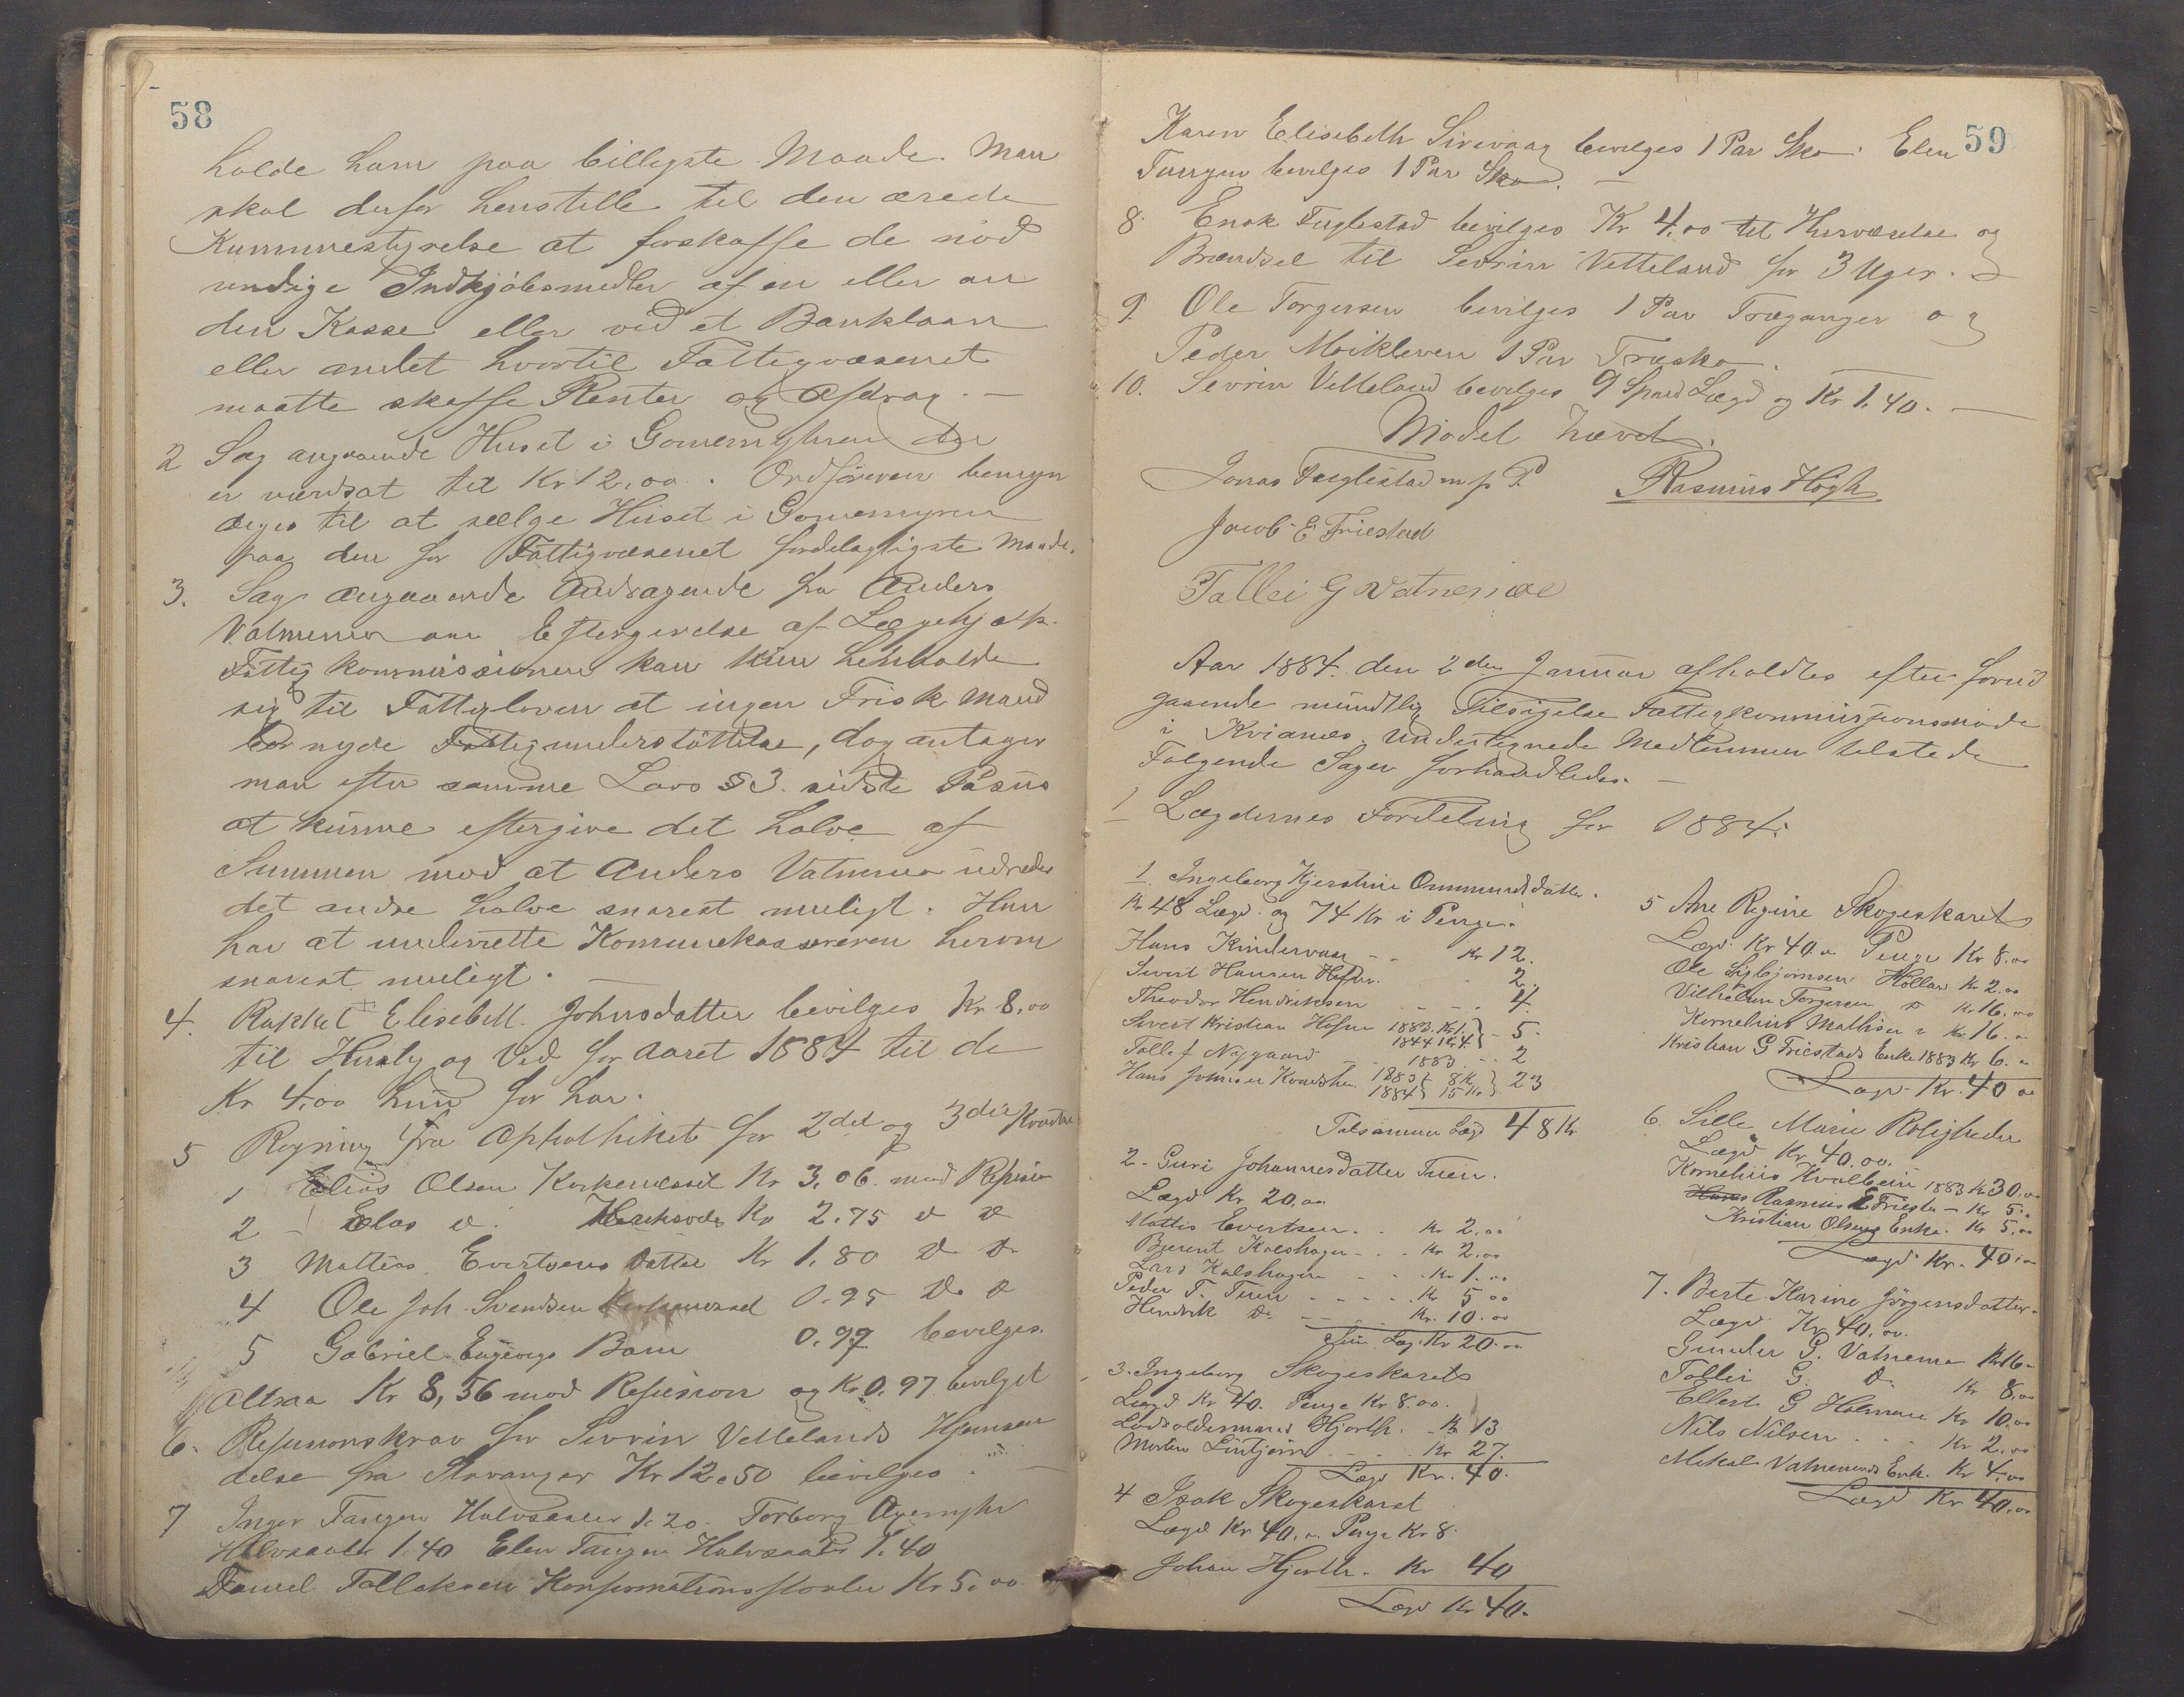 58
holde ham paa billigste Maade. Man
skal derfor henstille til den ærede
Kummunestyrelse at forskaffe de nød
vendige Indkjøbsmedler af en eller an
den Kasse eller ved et Banklaan
eller andet hvortil Fattigvæsenet
maatte skaffe Renter og Afdrag. —
2 Sag angaaende Huset i Gomemyhren der
er værdsat til Kr 12,00. Ordføreren bemyn
diges til at sælge Huset i Gomemyren
paa den for Fattigvæsenet fordelagtigste Maade.
3. Sag angaaende Andragende fra Anders
Vatnemo om Eftergivelse af Lægehjælp.
Fattigkommissionen kan kun henholde
sig til Fattigloven at ingen Frisk Mand
bør nyde Fattigunderstøttelse, dog antager
man efter samme Lovs § 3. sidste Pasus
at kunne eftergive det halve af
Summen mod at Anders Vatnemo udreder
det andre halve snarest muligt. Hun
har at underrette Komunekassereren herom
snarest muligt. —
4. Rakkel Elisebeth Johnsdatter bevilges Kr 8,00
til Husly og Ved for Aaret 1884 til de
Kr 4,00 hun før har.
5 Regning fra Apotheket for 2det og 3die Kvartal
1 Elias Olsen Kirkenæset Kr 3,06. mod Refusion
2 — Elas d. Kr 2.75 d d
3 Mattias Evertsens Datter Kr 1.80 d. d.
4 Ole Joh. Svendsen 0.95 d. d
5 Gabriel Barn 0.97 bevilges.
Altsaa Kr 8,56 mod Refusion og Kr 0.97 bevilget
6. Refusionskrav for Sevrin Vettelands Hjemsen
delse fra Stavanger Kr 12.50 bevilges. —
7 Inger Tangen Halvsaaler 1.20. Torborg
Halvsaaler 1.40 Elen Tangen Halvsaaler 1.40
Daniel Tollaksen Konfirmationsstøvler Kr 5.00
59
Karen Elisebeth Sirevaag bevilges 1 Par Sko. Elen
Tangen bevilges 1 Par Sko. —
8. Enok Fuglestad bevilges Kr 4.00 til Husværelse og
Brændsel til Sevrin Vetteland for 3 Uger. —
9. Ole Torgersen bevilges 1 Par Træganger og
Peder Moikleven 1 Par Træsko.
10. Sevrin Vetteland bevilges 9 Spand Lægd og Kr 1.40. —
Mødet hævet.
Jonas Fuglestad m p P. Rasmus Høgh
Jacob E Friestad
Tollei G Vatnemoe
Aar 1884. den 2den Januar afholdtes efter forud
gaaende mundtlig Tilsigelse Fattigkommissionsmøde
i Kvianes. Undertegnede Medlemmer tilstede
Følgende Sager forhandledes. —
1 Lægdernes Fordeling for 1884.
1. Ingeborg Kjerstine Ommundsdatter.
Kr 48 Lægd. og 74 Kr i Penge.
Hans Kindervaag - - Kr 12.
Sivert Hansen - 2.
Theodor Hendriksen - - - 4.
Sivert Kristian Hofsm 1883. Kr 1. } - 5.
1844 Kr 4.
Tollef Nygaard - - 1883 - - 2
Hans Johnsen 1883 } 8 Kr } 23
1884 } 15 Kr
Tilsammen Lægd 48 Kr.
2. Guri Johannesdatter Tuen.
Lægd Kr. 20,00
Mattis Evertsen - - Kr 2,00
Berent Kalshagen - - - Kr 2,00
Lars Kalshagen - - - Kr 1.00
Peder T. Tuen - - - - - Kr 5 00
Hendrik d. - - - - Kr. 10.00
Lægd Kr 20.00
3. Ingeborg Skogeskaret
Lægd Kr 40. Penge Kr 8.00.
Lodsoldermand Hjorth. - Kr 13
Morten Lintjørn - - - Kr 27.
Lægd Kr. 40.
4 Isak Skogeskaret
Lægd Kr 40.00 Penge Kr 8.
Johan Hjorth. Kr 40
Lægd Kr 40.
5 Ane Regine Skogeskaret
Lægd. Kr 40.00 Penge Kr 8.00
Ole Sigbjørnsen Hollen Kr 2.00
Vilhelm Torgersen d Kr 16.00
Kornelius Mathisen d Kr 16.00
Kristian G Friestads Enke 1883 Kr 6.00
Lægd Kr. 40 00
6. Sille Marie Rolighede
Lægd Kr 40.00.
Kornelius Kvalbein 1883 Kr 30,00
Rasmus E Friesta - Kr 5.00
Kristian Olsens Enke. Kr 5.00
Lægd Kr. 40.00
7. Berte Karine Jørgensdatter.
Lægd. Kr 40.00.
Gunder G. Vatnemo Kr 16.
Tollei G. d. Kr 8.00
Ellert G Holmen Kr 10.00
Nils Nilsen - - Kr 2.00
Mikal Vatnemos Enk. Kr 4.00
Lægd Kr 40.00